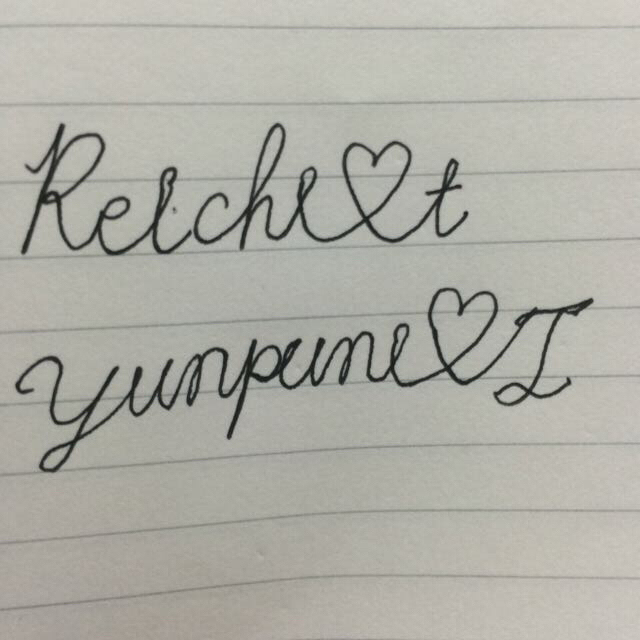 Reichi♡t
Yunpuni♡I